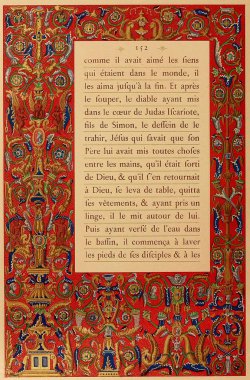 152
comme il avait aimé les ſiens
qui étaient dans le monde, il
les aima juſqu'à la fin. Et après
le ſouper, le diable ayant mis
dans le cœur de Judas Iſcariote,
fils de Simon, le deſſein de le
trahir, Jéſus qui ſavait que ſon
Pere lui avait mis toutes choſes
entre les mains, qu'il était ſorti
de Dieu, & qu'il s'en retournait
à Dieu, ſe leva de table, quitta
ſes vêtements, & ayant pris un
linge, il le mit autour de lui.
Puis ayant verſé de l'eau dans
le baſſin, il commença à laver
les pieds de ſes diſciples & à les